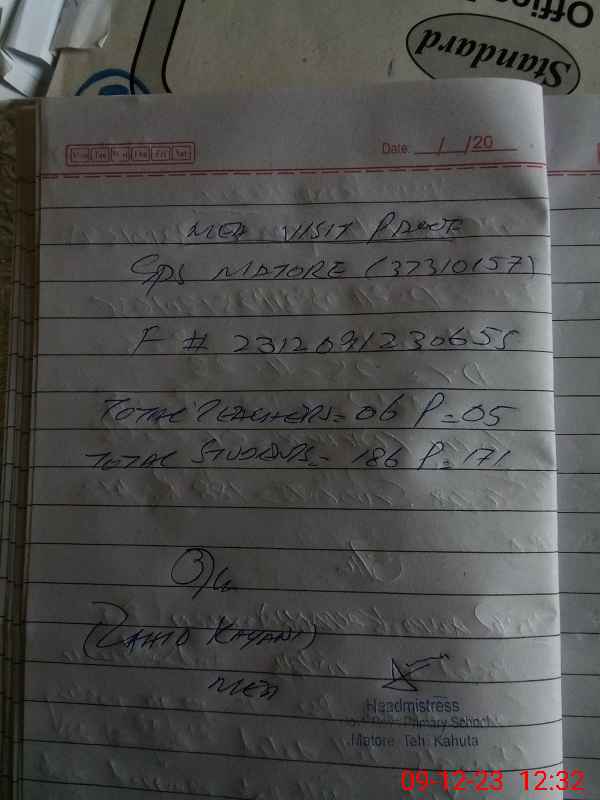 Office
Standard
Mon Tue Wed Thu Fri Sat
Date: / /20
MEA VISIT PROOF
GPS MATORE (37310157)
F # 2312091230655
TOTAL TEACHERS = 06 P = 05
TOTAL STUDENTS = 186 P = 171
(ZAHID KAYANI)
MEA
Headmistress
Primary School
Matore Teh: Kahuta
09-12-23 12:32